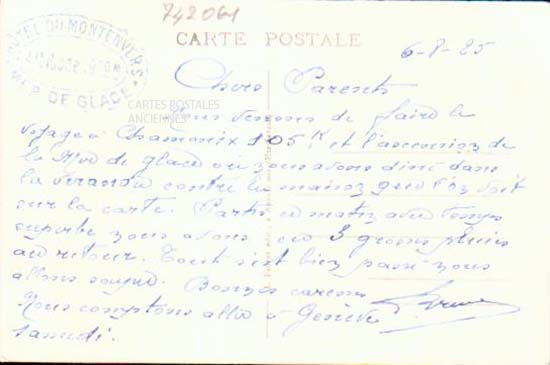 742061
HOTEL DU MONTENVERS
MER DE GLACE
CARTE POSTALE
6-8-25
CARTES POSTALES
ANCIENNES
Chers Parents
Nous venons de faire le
voyage à Chamonix 105 K et l'ascension de
la Mer de glace où nous avons diné dans
la veranda contre la maison que l'on voit
sur la carte. Partis ce matin avec temps
superbe nous avons eu 3 grosses pluies
au retour. Tout s'est bien passé nous
allons souper. Bonnes caresses
Nous comptons aller à Genève
samedi.